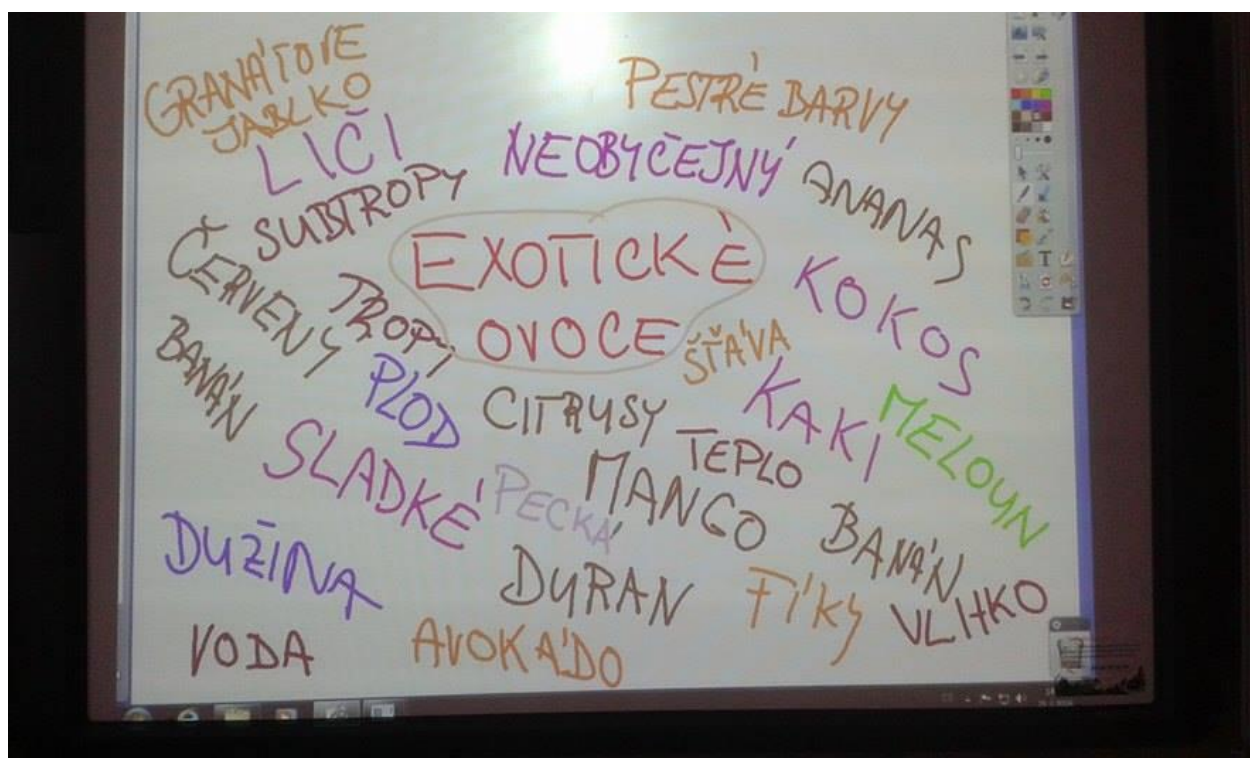 GRANÁTOVE
JABLKO
PESTRÉ BARVY
LIČI
NEOBYČEJNÝ
ANANAS
SUBTROPY
EXOTICKÉ
OVOCE
ČERVENÝ
TROPY
KOKOS
BANÁN
PLOD
ŠŤÁVA
CITRUSY
KAKI
MELOUN
SLADKÉ
PECKA
TEPLO
MANGO
BANÁN
DUŽINA
DURAN
FÍKY
VLHKO
VODA
AVOKÁDO